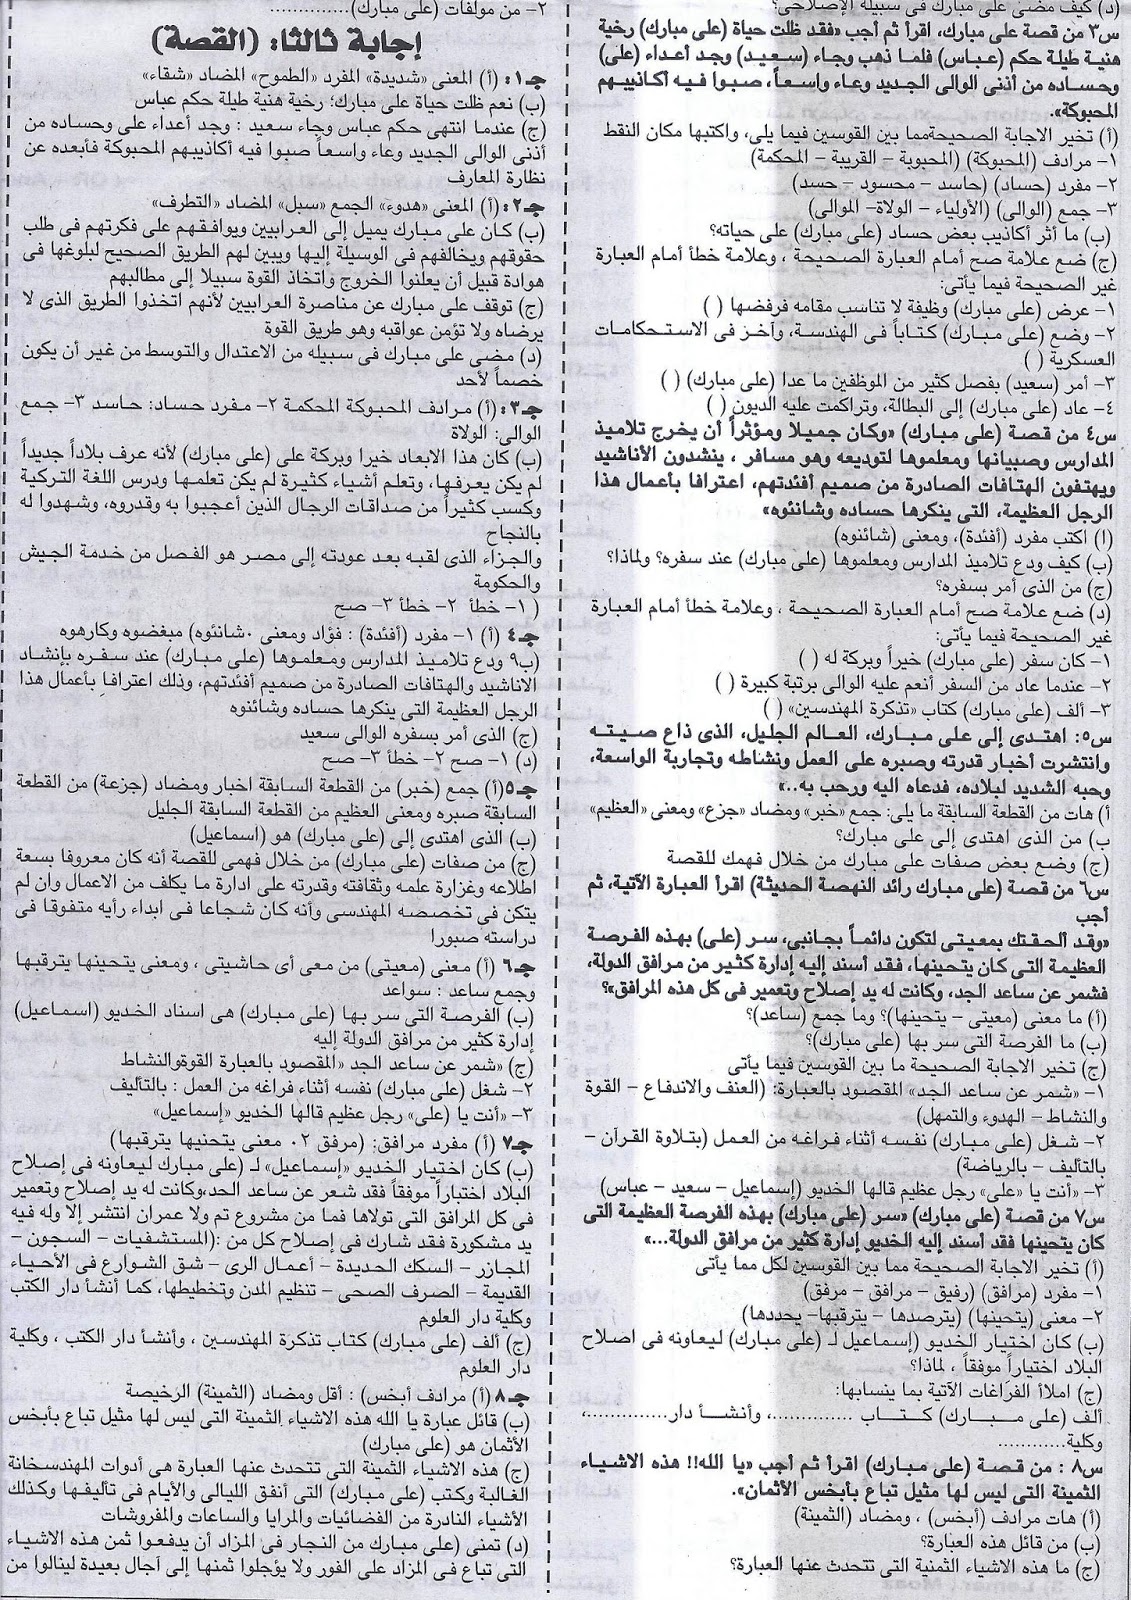 (د) كيف مضى على مبارك فى سبيله الإصلاحى؟
س٣ من قصة على مبارك، اقرأ ثم أجب «فقد ظلت حياة (على مبارك) رخية
هنية طيلة حكم (عباس) فلما ذهب وجاء (سعيد) وجد أعداء (على)
وحساده من أذنى الوالى الجديد وعاء واسعاً، صبوا فيه أكاذيبهم
المحبوكة».
(أ) تخير الاجابة الصحيحةمما بين القوسين فيما يلى، واكتبها مكان النقط
١- مرادف (المحبوكة) (المحبوبة - القريبة - المحكمة)
٢- مفرد (حساد) (حاسد - محسود - حسد)
٣- جمع (الوالى) (الأولياء - الولاة- الموالى)
(ب) ما أثر أكاذيب بعض حساد (على مبارك) على حياته؟
(ج) ضع علامة صح أمام العبارة الصحيحة ، وعلامة خطأ أمام العبارة
غير الصحيحة فيما يأتى:
١- عرض (على مبارك) وظيفة لا تناسب مقامه فرفضها ( )
٢- وضع (على مبارك) كتاباً فى الهندسة، وآخر فى الاستحكامات
العسكرية ( )
٣- أمر (سعيد) بفصل كثير من الموظفين ما عدا (على مبارك) ( )
٤- عاد (على مبارك) إلى البطالة، وتراكمت عليه الديون ( )
س٤ من قصة (على مبارك) «وكان جميلا ومؤثراً أن يخرج تلاميذ
المدارس وصبيانها ومعلموها لتوديعه وهو مسافر ، ينشدون الأناشيد
ويهتفون الهتافات الصادرة من صميم أفئدتهم، اعترافا بأعمال هذا
الرجل العظيمة، التى ينكرها حساده وشانئوه»
(ا) اكتب مفرد (أفئدة)، ومعنى (شانئوه)
(ب) كيف ودع تلاميذ المدارس ومعلموها (على مبارك) عند سفره؟ ولماذا؟
(ج) من الذى أمر بسفره؟
(د) ضع علامة صح أمام العبارة الصحيحة ، وعلامة خطأ أمام العبارة
غير الصحيحة فيما يأتى:
١- كان سفر (على مبارك) خيراً وبركة له ( )
٢- عندما عاد من السفر أنعم عليه الوالى برتبة كبيرة ( )
٣- ألف (على مبارك) كتاب «تذكرة المهندسين» ( )
س٥: اهتدى إلى على مبارك، العالم الجليل، الذى ذاع صيته
وانتشرت أخبار قدرته وصبره على العمل ونشاطه وتجاربة الواسعة،
وحبه الشديد لبلاده، فدعاه اليه ورحب به..»
أ) هات من القطعة السابقة ما يلى: جمع «خبر» ومضاد «جزع» ومعنى «العظيم»
ب) من الذى اهتدى إلى على مبارك؟
(ج) وضع بعض صفات على مبارك من خلال فهمك للقصة
س٦ من قصة (على مبارك رائد النهصة الحديثة) اقرأ العبارة الآتية، ثم
أجب
«وقد ألحقتك بمعيتى لتكون دائماً بجانبى، سر (على) بهذه الفرصة
العظيمة التى كان يتحينها، فقد أسند إليه إدارة كثير من مرافق الدولة،
فشمر عن ساعد الجد، وكانت له يد إصلاح وتعمير فى كل هذه المرافق»؟
(أ) ما معنى (معيتى - يتحينها)؟ وما جمع (ساعد)؟
(ب) ما الفرصة التى سر بها (على مبارك)؟
(ج) تخير الاجابة الصحيحة ما بين القوسين فيما يأتى
١- «شمر عن ساعد الجد» المقصود بالعبارة: (العنف والاندفاع - القوة
والنشاط - الهدوء والتمهل)
٢- شغل (على مبارك) نفسه أثناء فراغه من العمل (بتلاوة القرآن -
بالتأليف - بالرياضة)
٣- «أنت يا «على» رجل عظيم قالها الخديو (إسماعيل - سعيد - عباس)
س٧ من قصة (على مبارك) «سر (على مبارك) بهذه الفرصة العظيمة التى
كان يتحينها فقد أسند إليه الخديو إدارة كثير من مرافق الدولة...»
(أ) تخير الاجابة الصحيحة مما بين القوسين لكل مما يأتى
١- مفرد (مرافق) (رفيق - مرافق - مرفق)
٢- معنى (يتحينها) (يترصدها - يترقبها- يحددها)
(ب) كان اختيار الخديو (إسماعيل لـ (على مبارك) ليعاونه فى اصلاح
البلاد اختياراً موفقاً ، لماذا؟
(ج) املأ الفراغات الآتية بما ينسابها:
ألف (على مبارك) كتاب .............، وأنشأ دار.............،
وكلية............
س٨ : من قصة (على مبارك) اقرأ ثم أجب «يا الله!! هذه الاشياء
الثمينة التى ليس لها مثيل تباع بأبخس الأثمان».
(أ) هات مرادف (أبخس) ، ومضاد (الثمينة)
(ب) من قائل هذه العبارة؟
(ج) ما هذه الاشياء الثمنية التى تتحدث عنها العبارة؟
٢- من مولفات (على مبارك)..............
إجابة ثالثا: (القصة)
جـ١: (أ) المعنى «شديدة» المفرد «الطموح» المضاد «شقاء»
(ب) نعم ظلت حياة على مبارك؛ رخية هنية طيلة حكم عباس
(ج) عندما انتهى حكم عباس وجاء سعيد : وجد أعداء على وحساده من
أذنى الوالى الجديد وعاء واسعاً صبوا فيه أكاذيبهم المحبوكة فأبعده عن
نظارة المعارف
جـ٢: (أ) المعنى «هدوء» الجمع «سبل» المضاد «التطرف»
(ب) كان على مبارك يميل إلى العرابيين ويوافقهم على فكرتهم فى طلب
حقوقهم ويخالفهم فى الوسيلة إليها ويبين لهم الطريق الصحيح لبلوغها فى
هوادة قبيل أن يعلنوا الخروج واتخاذ القوة سبيلا إلى مطالبهم
(ج) توقف على مبارك عن مناصرة العرابيين لأنهم اتخذوا الطريق الذى لا
يرضاه ولا تؤمن عواقبه وهو طريق القوة
(د) مضى على مبارك فى سبيله من الاعتدال والتوسط من غير أن يكون
خصماً لأحد
جـ٣: (أ) مرادف المحبوكة المحكمة ٢- مفرد حساد: حاسد ٣- جمع
الوالى: الولاة
(ب) كان هذا الابعاد خيرا وبركة على (على مبارك) لأنه عرف بلاداً جديداً
لم يكن يعرفها، وتعلم أشياء كثيرة لم يكن تعلمها ودرس اللغة التركية
وكسب كثيراً من صداقات الرجال الذين أعجبوا به وقدروه، وشهدوا له
بالنجاح
والجزاء الذى لقبه بعد عودته إلى مصر هو الفصل من خدمة الجيش
والحكومة
( ١- خطأ ٢- خطأ ٣- صح
جـ٤ (أ) ١- مفرد (أفئدة) : فؤاد ومعنى ٠شانئوه) مبغضوه وكارهوه
(ب٩ ودع تلاميذ المدارس ومعلموها (على مبارك) عند سفره بإنشاد
الاناشيد والهتافات الصادرة من صميم أفئدتهم، وذلك اعترافا بأعمال هذا
الرجل العظيمة التى ينكرها حساده وشائنوه
(ج) الذى أمر بسفره الوالى سعيد
(د) ١- صح ٢- خطأ ٣- صح
جـ٥(أ) جمع (خبر) من القطعة السابقة اخبار ومضاد (جزعة) من القطعة
السابقة صبره ومعنى العظيم من القطعة السابقة الجليل
(ب) الذى اهتدى إلى (على مبارك) هو (اسماعيل)
(ج) من صفات (على مبارك) من خلال فهمى للقصة أنه كان معروفا بسعة
اطلاعه وغزارة علمه وثقافته وقدرته على ادارة ما يكلف من الاعمال وان لم
يتكن فى تخصصه المهندسى وأنه كان شجاعا فى ابداء رأيه متفوقا فى
دراسته صبورا
جـ٦ (أ) معنى (معيتى) من معى أى حاشيتى ، ومعنى يتحينها يترقبها
وجمع ساعد : سواعد
(ب) الفرصة التى سر بها (على مبارك) هى اسناد الخديو (اسماعيل)
إدارة كثير من مرافق الدولة إليه
(ج) «شمر عن ساعد الجد «المقصود بالعبارة القوةوالنشاط
٢- شغل (على مبارك) نفسه أثناء فراغه من العمل : بالتأليف
٣- «أنت يا (على» رجل عظيم قالها الخديو «إسماعيل»
جـ٧ (أ) مفرد مرافق: (مرفق ٠٢ معنى يتحنيها يترقبها)
(ب) كان اختيار الخديو «إسماعيل» لـ (على مبارك ليعاونه فى إصلاح
البلاد اختباراً موفقاً فقد شعر عن ساعد الحد،وكانت له يد إصلاح وتعمير
فى كل المرافق التى تولاها فما من مشروع تم ولا عمران انتشر إلا وله فيه
يد مشكورة فقد شارك فى إصلاح كل من :(المستشفيات - السجون -
المجازر - السكك الحديدة - أعمال الرى - شق الشوارع فى الأحياء
القديمة - الصرف الصحى - تنظيم المدن وتخطيطها، كما أنشأ دار الكتب
وكلية دار العلوم
(ج) ألف (على مبارك) كتاب تذكرة المهندسين ، وأنشأ دار الكتب ، وكلية
دار العلوم
جـ٨ (أ) مرادف أبخس) : أقل ومضاد (الثمينة) الرخيصة
(ب) قائل عبارة يا الله هذه الاشياء الثمينة التى ليس لها مثيل تباع بأبخس
الأثمان هو (على مبارك)
(ج) هذه الاشياء الثمينة التى تتحدث عنها العبارة هى أدوات المهندسخانة
الغالبة وكتب (على مبارك) التى أنفق الليالى والأيام فى تأليفها وكذلك
الأشياء النادرة من الفضائيات والمرايا والساعات والمفروشات
(د) تمنى (على مبارك من النجار فى المزاد أن يدفعوا ثمن هذه الاشياء
التى تباع فى المزاد على الفور ولا يؤجلوا ثمنها إلى آجال بعيدة لينالوا من